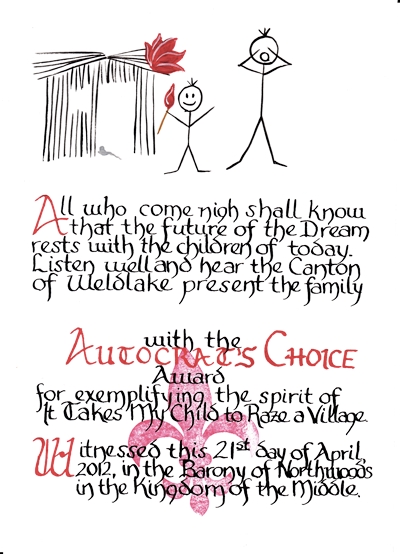 All who come nigh shall know
that the future of the Dream
rests with the children of today.
Listen well and hear the Canton
of Weldlake present the family
with the
AUTOCRAT'S CHOICE
Award
for exemplifying the spirit of
It Takes My Child to Raze a Village.
Witnessed this 21st day of April,
2012, in the Barony of Northwoods
in the Kingdom of the Middle.